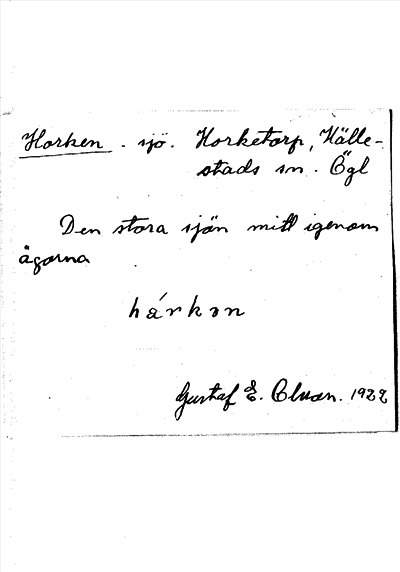 Horken . sjö. Horketorp, Hälle-
stads sn. Ögl
Den stora sjön mitt igenom
ägorna
hárkən
Gustaf E. Olsson. 1922